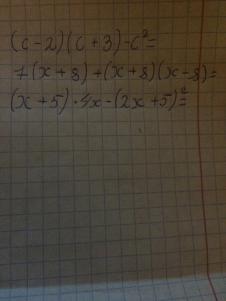 (c-2)(c+3)-c²=
7(x+8)+(x+8)(x-8)=
(x+5)·4x-(2x+5)²=